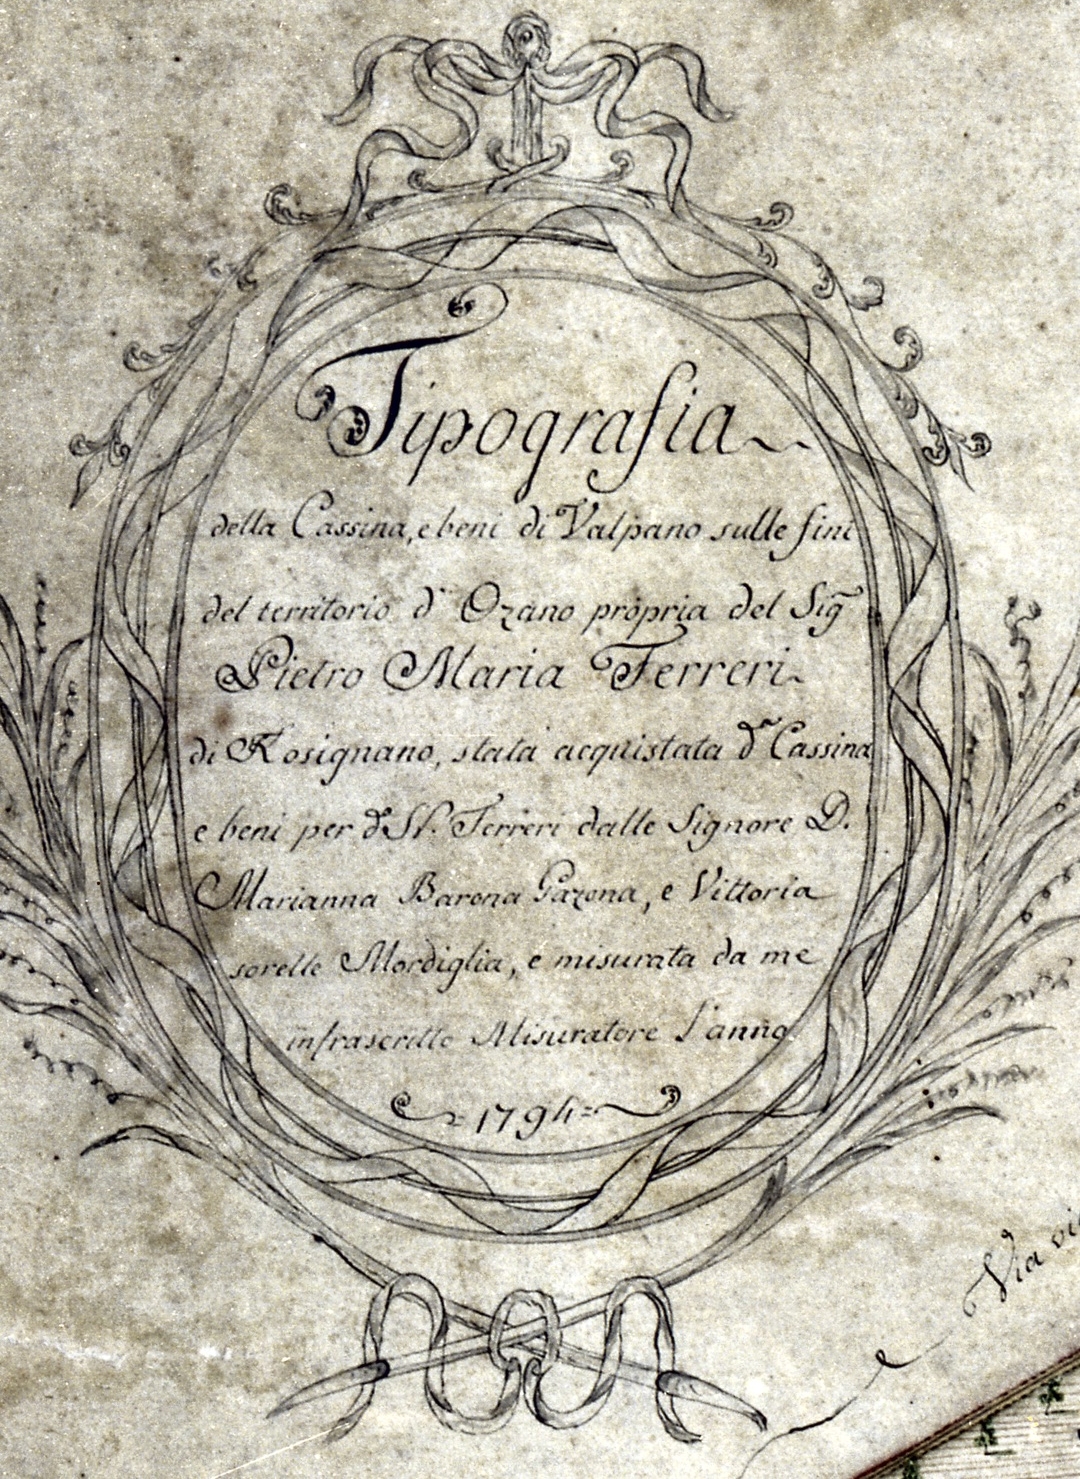 Tipografia
della Cassina, e beni di Valpano sulle fini
del territorio d' Ozano propria del Sig.
Pietro Maria Ferreri
di Rosignano, stata acquistata d.a Cassina
e beni per d.o Sr. Ferreri dalle Signore D.
Marianna Barona Gazona, e Vittoria
sorelle Mordiglia, e misurata da me
infrascritto Misuratore l'anno
=1794=
Via